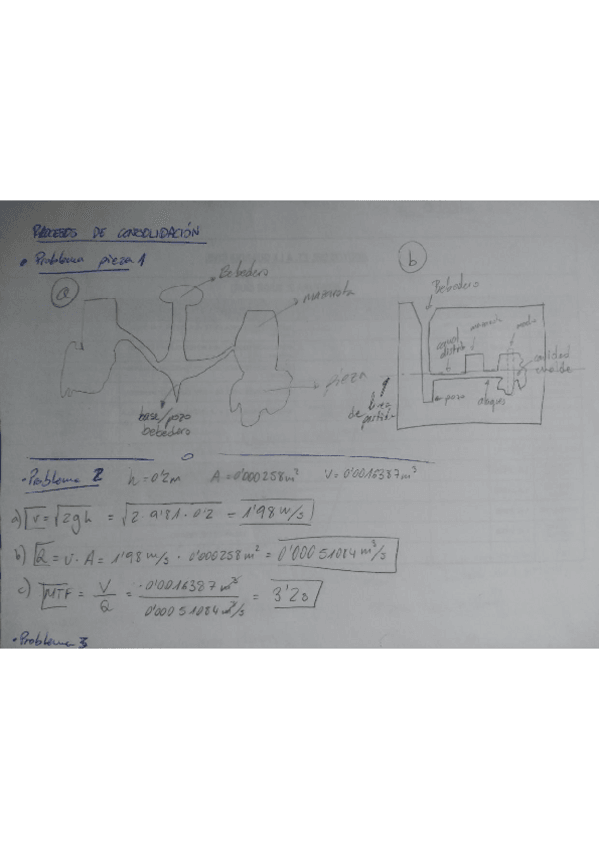 PROCESOS DE CONSOLIDACIÓN
• Problema pieza 1
a
Bebedero
mazarota
pieza
base/pozo
bebedero
b
Bebedero
canal
distrib
mazarota
molde
cavidad
molde
pozo
ataques
de
partición
• Problema 2 h = 0'2m A = 0'000258m² V = 0'0016387m³
a) v = √2gh = √2·9'81·0'2 = 1'98 m/s
b) Q = v·A = 1'98 m/s · 0'000258m² = 0'00051084 m³/s
c) MTF = V/Q = 0'0016387 m³ / 0'00051084 m³/s = 3'2s
• Problema 3